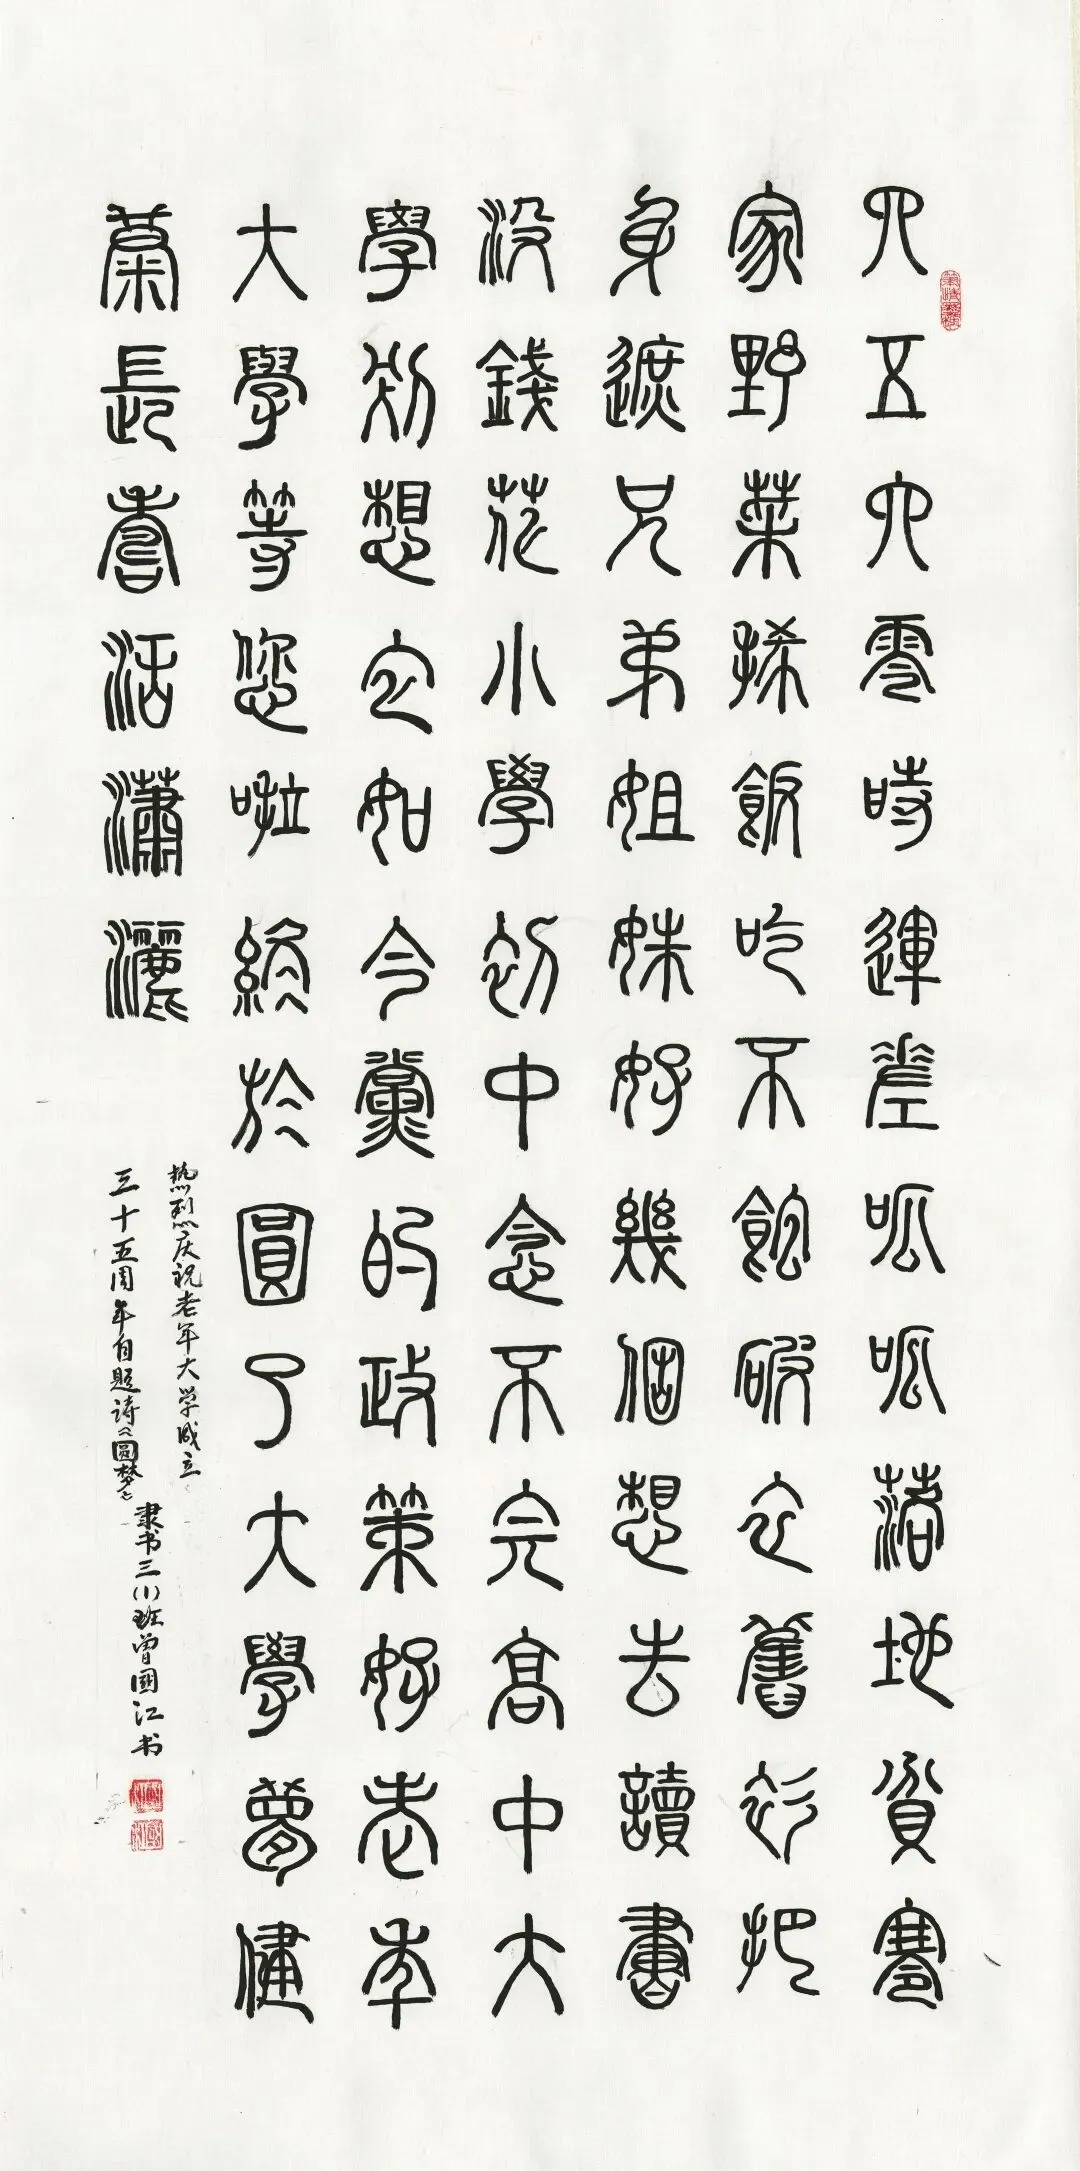 四五六零時運差呱呱落地貧寒
家野菜稀飯吃不飽破衣舊衫把
身遮兄弟姐妹好幾個想去讀書
沒錢花小學初中念不完高中大
學別想它如今黨的政策好老年
大學等您啦終於圓了大學夢健
康長壽活瀟灑
热烈庆祝老年大学成立
三十五周年自题诗《圆梦》
隶书三(1)班曾國江书